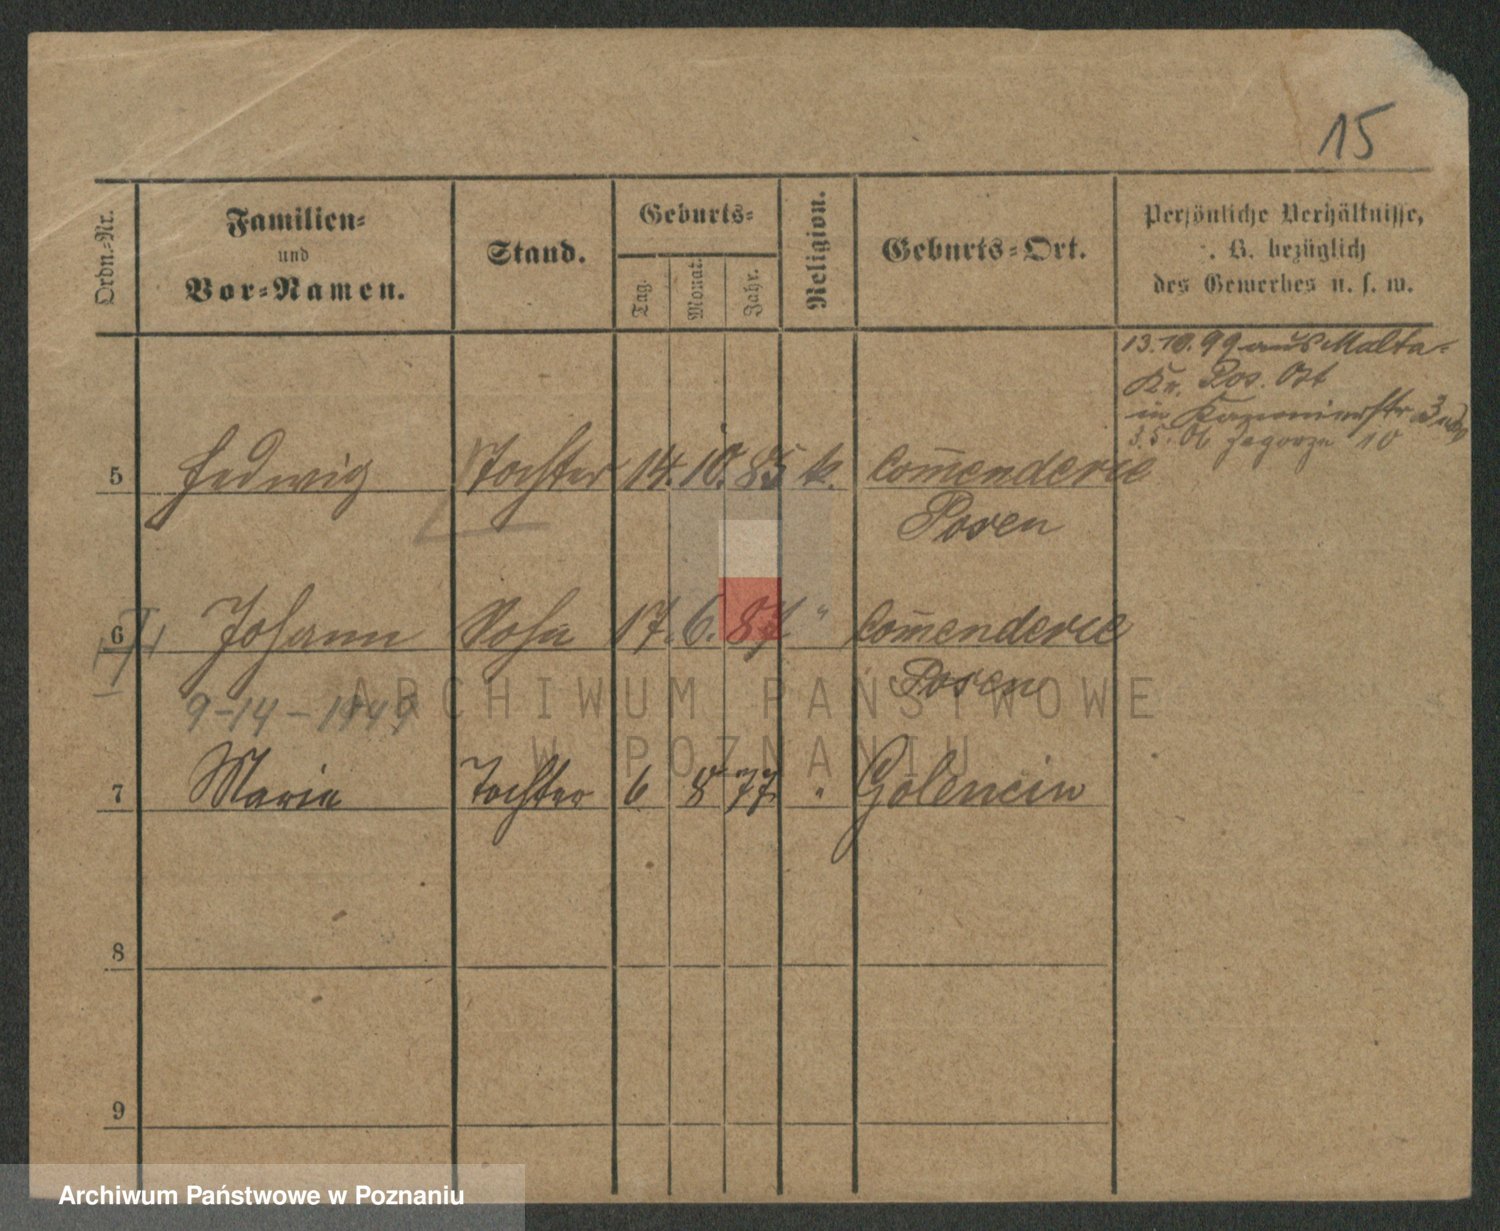 15
Ordn.-Nr.
Familien-
und
Vor-Namen.
Stand.
Geburts-
Tag.
Monat.
Jahr.
Religion.
Geburts-Ort.
Persönliche Verhältnisse,
. B. bezüglich
des Gewerbes u. s. w.
13.10.99 aus Malta-
Kr. Pos. Ost
in
3.5.06 Zagorze 10
5 Hedwig Tochter 14. 10. 85 k. Com̄enderie
Posen
6 Johann Sohn 17. 6. 87 " Com̄enderie
Posen
9-14-1949
7 Maria Tochter 6 8 77 " Golencin
8
9
ARCHIWUM PAŃSTWOWE
W POZNANIU
Archiwum Państwowe w Poznaniu